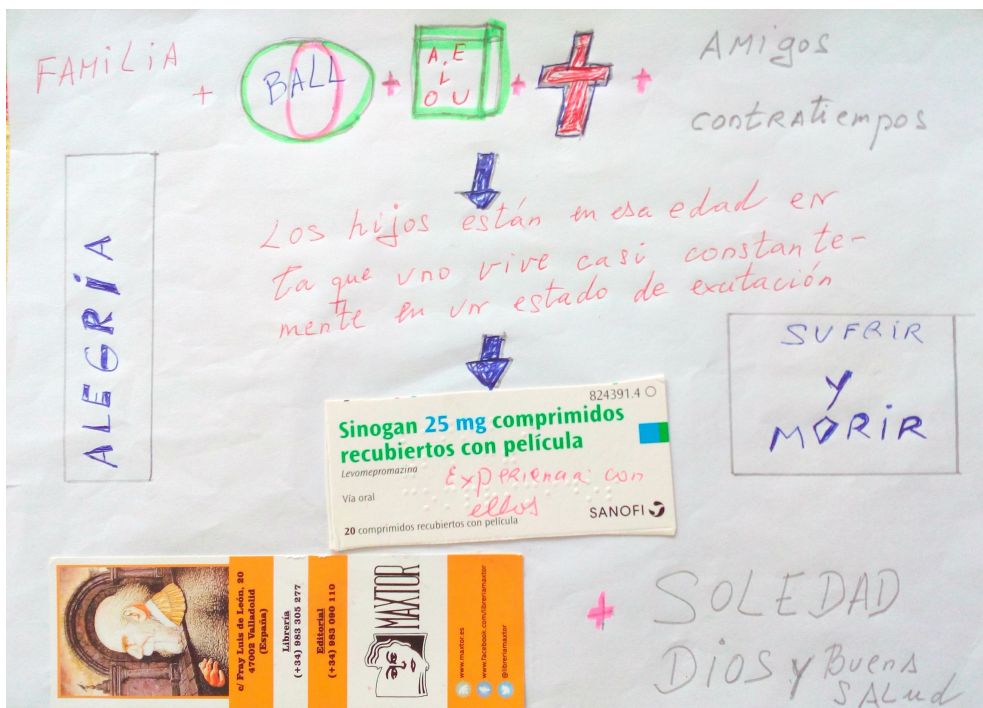 FAMiLiA
+
BALL
+
A, E
i
O U
+
+
AMigos
contRAtiempos
ALEGRÍA
Los hijos están en esa edad en
la que uno vive casi constante-
mente en un estado de exutación
SUFRiR
Y
MORiR
824391.4
Sinogan 25 mg comprimidos
recubiertos con película
Levomepromazina
Vía oral
ExpERiencia con
ellos
20 comprimidos recubiertos con película
SANOFI
c/ Fray Luis de León, 20
47002 Valladolid
(España)
Librería
(+34) 983 305 277
Editorial
(+34) 983 090 110
MAXTOR
www.maxtor.es
www.facebook.com/libreriamaxtor
@libreriamaxtor
+
SOLEDAD
Dios y Buena
SALud